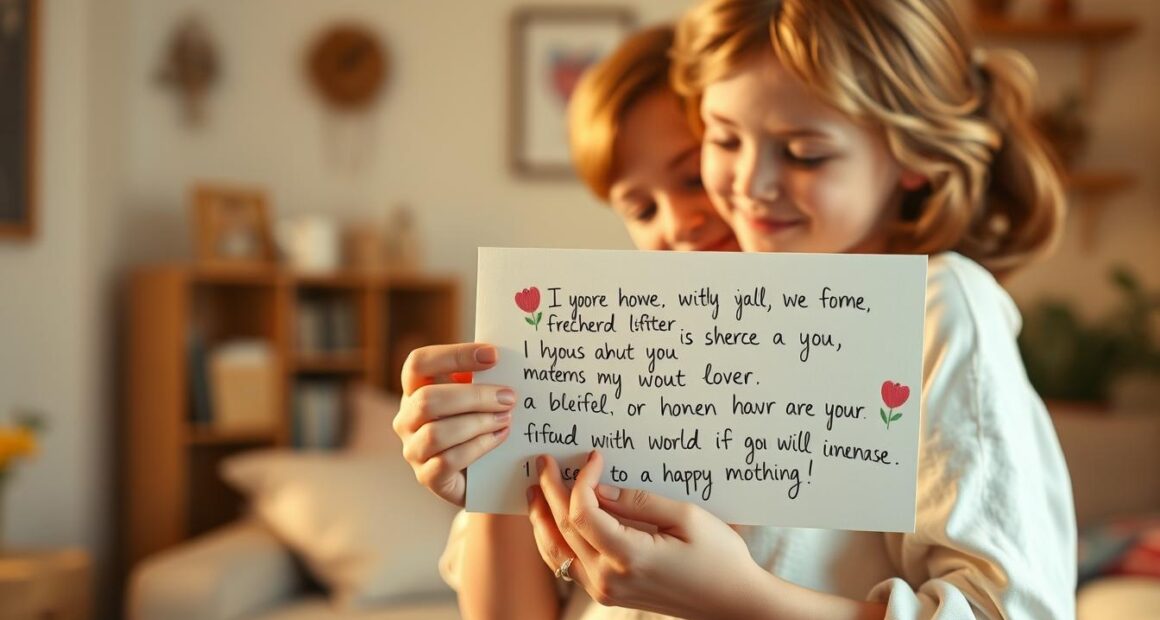 I yoore howe, witly yall, we fome,
frecherd lifter is sherce a you,
I hyous ahut you
matems my wout lover.
a bleifel, or honen havr are your.
fifud with world if goı will imenase.
to a happy mothing!